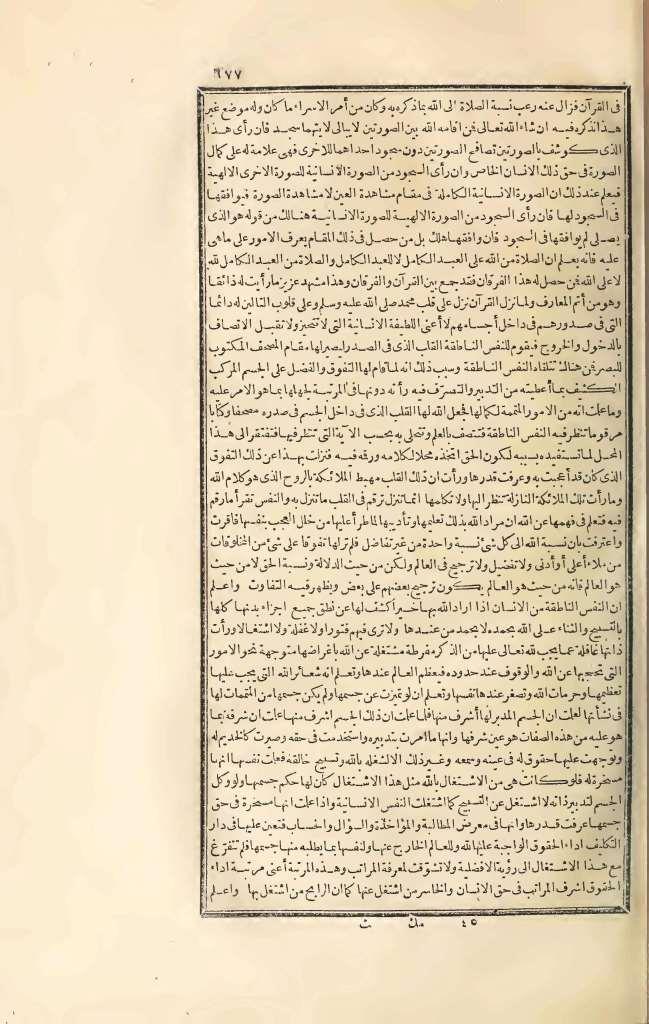 ٦٧٧
فى القرآن فزال عنه رعب نسبة الصلاة الى الله بماذكره به وكان من أمر الاسراء ما كان وله موضع غير
هذا نذكره فيه ان شاء الله تعالى فمن اقامه الله بين الصورتين لا يبالى لا يتهما سجد فان رأى هذا
الذى كوشف بالصورتين تصافح الصورتين دون سجود احداهما للاخرى فهى علامة له على كمال
الصورة فى حق ذلك الانسان الخاص وان رأى السجود من الصورة الانسانية للصورة الاخرى الالهية
فيعلم عند ذلك ان الصورة الانسانية الكاملة فى مقام مشاهدة العين لا مشاهدة الصورة فيوافقها
فى السجود لها فان رأى السجود من الصورة الالهية للصورة الانسانية هنالك من قوله هو الذى
يصلى لم يوافقها فى السجود فان وافقها هلك بل من حصل فى ذلك المقام يعرف الامور على ما هى
عليه فانه يعلم ان الصلاة من الله على العبد الكامل لا للعبد الكامل والصلاة من العبد الكامل لله
لا على الله فمن حصل له هذا الفرقان فقد جمع بين القرآن والفرقان وهذا مشهد عزيز ما رأيت له ذائقا
وهو من أتم المعارف ولما نزل القرآن نزل على قلب محمد صلى الله عليه وسلم وعلى قلوب التالين له دائما
التى فى صدورهم فى داخل أجسامهم لا أعنى اللطيفة الانسانية التى لا تتحيز ولا تقبل الاتصاف
بالدخول والخروج فيقوم للنفس الناطقة القلب الذى فى الصدر لبصيرتها مقام المصحف المكتوب
للبصر فمن هناك تتلقاه النفس الناطقة وسبب ذلك انه لما قام لها التفوق والفضل على الجسم المركب
الكثيف بما أعطيته من التدبير والتصرف فيه رأته دونها فى المرتبة لجهلها بما هو الامر عليه
وما علمت انه من الامور المتممة لكمالها فجعل الله لها القلب الذى فى داخل الجسم فى صدره مصحفا وكتابا
مرقوما تنظر فيه النفس الناطقة فتتصف بالعلم وتتحلى به بحسب الآية التى تنظر فيها فتفتقر الى هذا
المحل لما تستفيده بسببه لكون الحق اتخذه محلا لكلامه ورقمه فيه فنزلت بهذا عن ذلك التفوق
الذى كان قد أعجبت به وعرفت قدرها ورأت ان ذلك القلب مهبط الملائكة بالروح الذى هو كلام الله
وما رأت تلك الملائكة النازلة تنظر اليها ولا تكلمها انما تنزل ترقم فى القلب ما تنزل به والنفس تقرأ ما رقم
فيه فتعلم فى فهمها عن الله ان مراد الله بذلك تعليمها وتأديبها لما طرأ عليها من خلل العجب بنفسها فاقرت
واعترفت بان نسبة الله الى كل شئ نسبة واحدة من غير تفاضل فلم تر لها تفوقا على شئ من المخلوقات
من ملاء أعلى أو أدنى ولا تفضيل ولا ترجيح فى العالم ولكن من حيث الدلالة ونسبة الحق لا من حيث
هو العالم فانه من حيث هو العالم يكون ترجيح بعضهم على بعض ويظهر فيه التفاوت واعلم
ان النفس الناطقة من الانسان اذا اراد الله بها خيرا كشف لها عن نطق جميع اجزاء بدنها كلها
بالتسبيح والثناء على الله بحمده لا بحمد من عندها ولا ترى فيهم فتورا ولا غفلة ولا اشتغالا ورأت
ذاتها غافلة عما يجب لله تعالى عليها من الذكر مفرطة مشتغلة عن الله باغراضها متوجهة نحو الامور
التى تحجبها عن الله والوقوف عند حدوده فيعظم العالم عندها وتعلم انه شعائر الله التى يجب عليها
تعظيمها وحرمات الله وتصغر عندها نفسها وتعلم ان لو تميزت عن جسمها ولم يكن جسمها من المتممات لها
فى نشأتها لعلمت ان الجسم المدبر لها أشرف منها فلما علمت ان ذلك الجسم اشرف منها علمت ان شرفه بما
هو عليه من هذه الصفات هو عين شرفها وانها ما امرت بتدبيره واستخدمت فى حقه وصيرت كالخديم له
وتوجهت عليها حقوق له فى عينه وسمعه وغير ذلك الا لشغله بالله وتسبيح خالقه فعلمت نفسها انها
مسخرة له فلو كانت هى من الاشتغال بالله مثل هذا الاشتغال كان لها حكم جسمها ولو وكل
الجسم لتدبير ذاته لاشتغل عن التسبيح كما اشتغلت النفس الانسانية واذا علمت انها مسخرة فى حق
جسمها عرفت قدرها وانها فى معرض المطالبة والمؤاخذة والسؤال والحساب فتعين عليها فى دار
التكليف اداء الحقوق الواجبة عليها لله وللعالم الخارج عنها ولنفسها بما يطلبه منها جسمها فلم تتفرغ
مع هذا الاشتغال الى رؤية الافضلية ولا تشوقت لمعرفة المراتب وهذه المرتبة أعنى مرتبة اداء
الحقوق اشرف المراتب فى حق الانسان والخاسر من اشتغل عنها كما ان الرابح من اشتغل بها واعلم
٤٥ مك ث